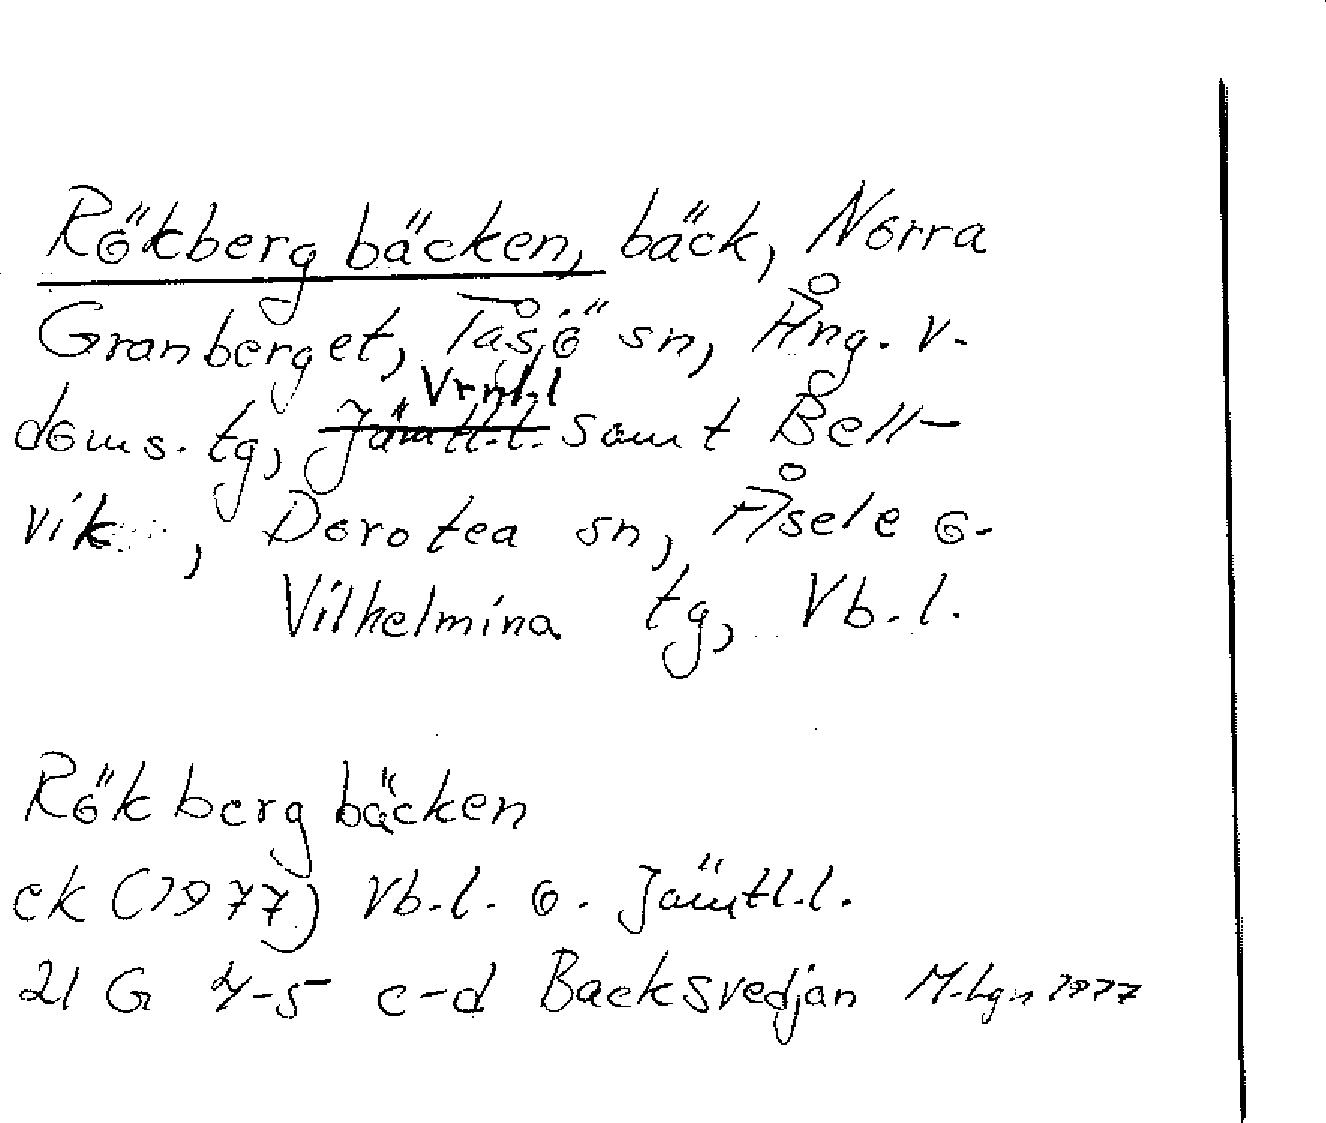 Rökbergbäcken, bäck, Norra
Granberget, Tåsjö sn, Ång. v.
doms. tg, Jämtl.l. Vrnl.l samt Bell-
vik, Dorotea sn, Åsele o.
Vilhelmina tg, Vb.l.
Rökbergbäcken
ek (1977) Vb.l. o. Jämtl.l.
21 G 4-5 c-d Backsvedjan M-lgn 1977